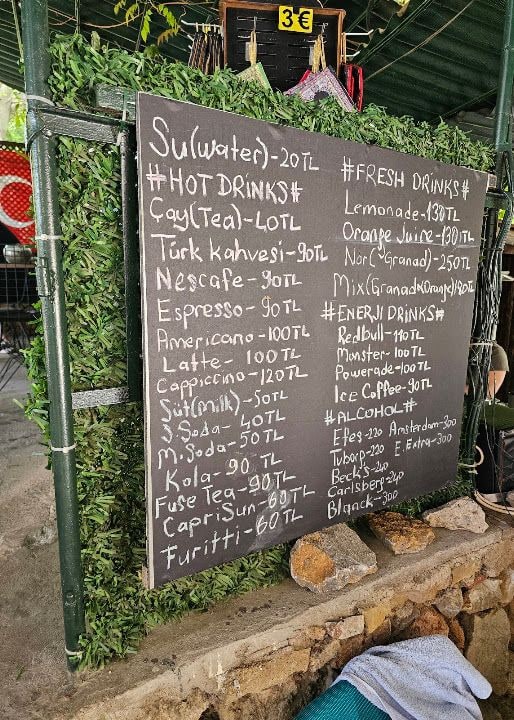 3 €
Su(water)-20TL
#HOT DRiNKS#
Çay(Tea)-40TL
Türk kahvesi-90TL
Nescafe-90TL
Espresso-90TL
Americano-100TL
Latte-100TL
Cappiccino-120TL
Süt(milk)-50TL
S.Soda-40TL
M.Soda-50TL
Kola-90TL
Fuse Tea-90TL
CapriSun-60TL
Furitti-60TL
#FRESH DRiNKS#
Lemonade-130TL
Orange Juice-130TL
Nar(Granad)-250TL
Mix(Granad&Orange)180TL
#ENERJi DRiNKS#
Redbull-110TL
Monster-100TL
Powerade-100TL
Ice Coffee-90TL
#ALCOHOL#
Efes-220 Amsterdam-300
Tuborg-220 E.Extra-300
Beck's-240
Carlsberg-240
Blanck-300